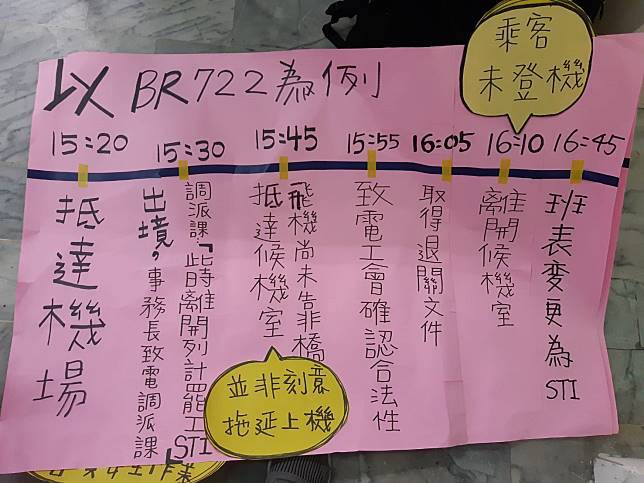 以 BR722為例
乘客
未登機
15:20
15:30
15:45
15:55
16:05
16:10
16:45
抵達機場
出境，事務長致電調派課
調派課「此時離開列計罷工STI」
抵達候機室
飛機尚未靠橋
致電工會確認合法性
取得退關文件
離開候機室
班表變更為STI
並非刻意
拖延上機